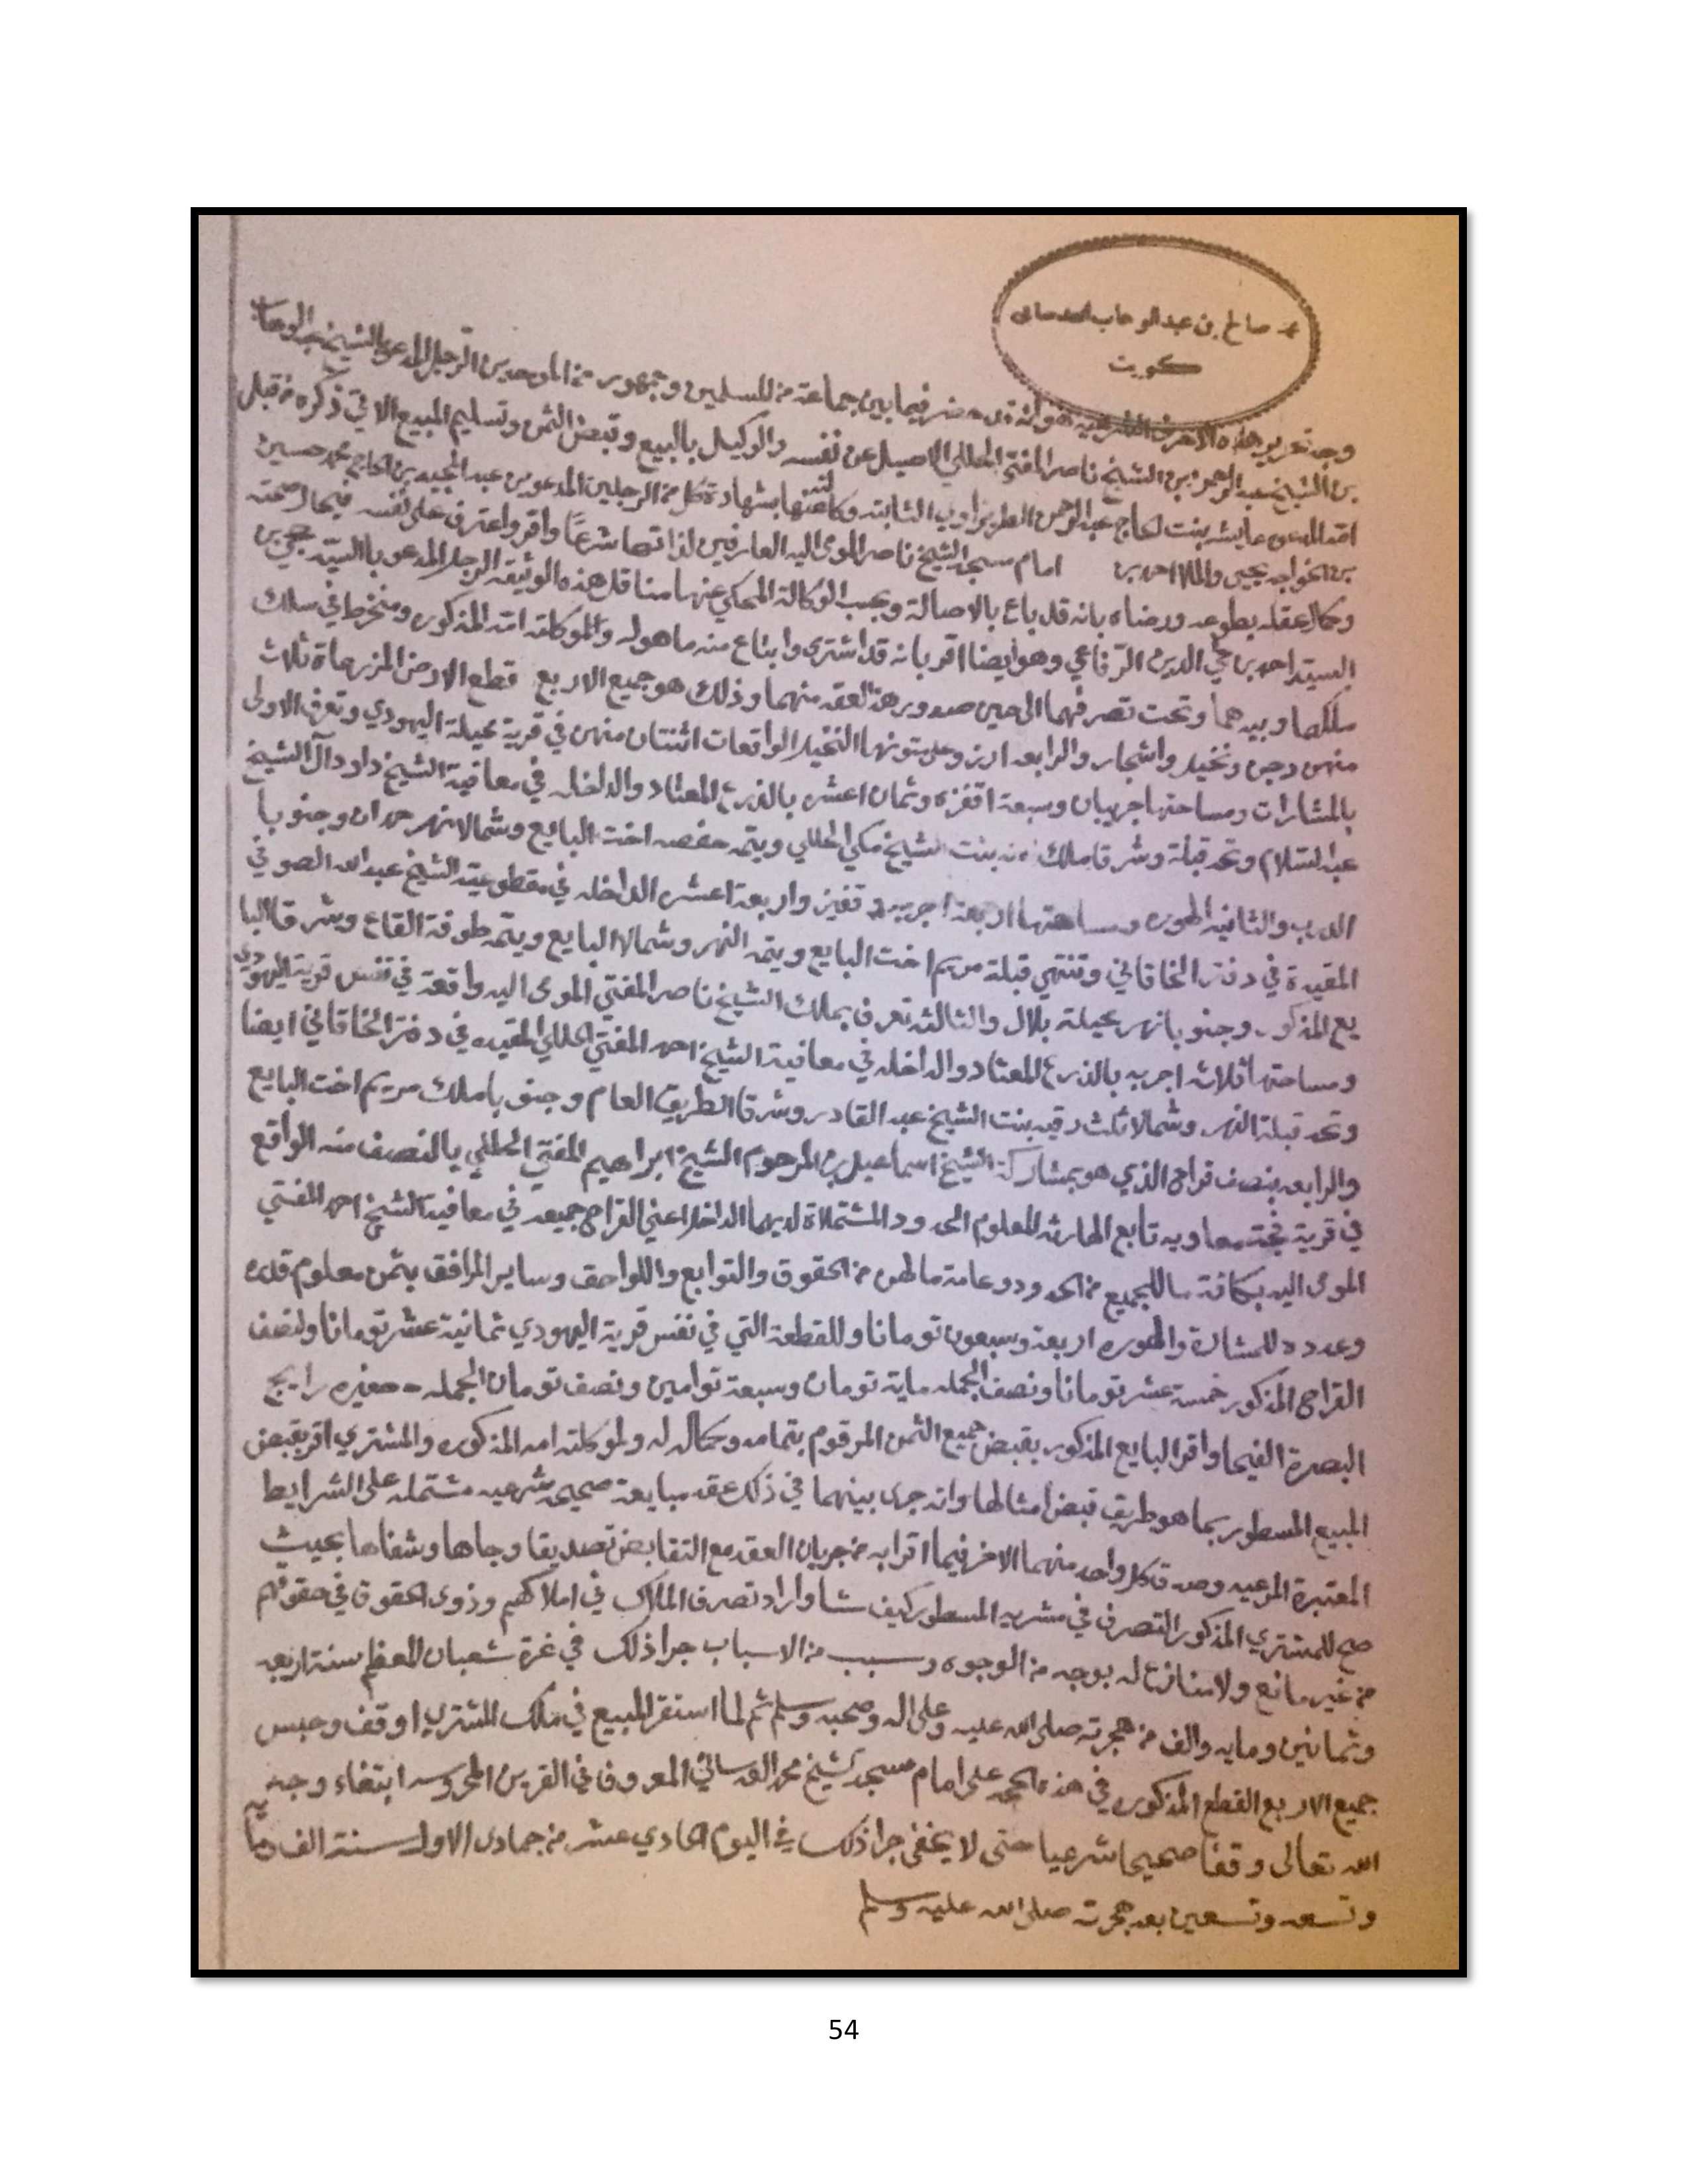 محمد صالح بن عبدالوهاب العدساني
كويت
وجه تحرير هذه الاحرف الشرعيه هو انه قد حضر فيما بين جماعة من المسلمين وجمهور من الموحدين الرجل المدعو بالشيخ عبدالوهاب
بن الشيخ عبدالرحمن بن الشيخ ناصر المفتي الحللي الاصيل عن نفسه والوكيل بالبيع وقبض الثمن وتسليم المبيع الاتي ذكره من قبل
امه المدعوه عايشه بنت الحاج عبدالرحمن الثابته وكالته عنها بشهادة كل من الرجلين المدعوين عبدالمجيد بن الحاج محمد حسين
بن الخواجه يحيى والملا احمد بن امام مسجد الشيخ ناصر المومى اليه العارفين لذاتها شرعا واقر واعترف على نفسه في حال صحته
وكمال عقله بطوعه ورضاه بانه قد باع بالاصالة وبحسب الوكالة المحكي عنها مناقل هذه الوثيقه الرجل المدعو بالسيد
السيد احمد بن محي الدين الرفاعي وهو ايضا اقر بانه قد اشترى وابتاع منه ما هو له ولموكلته امه المذكوره ومنخرط في سلك
ملكهما وبيدهما وتحت تصرفهما الى حين صدور هذا العقد منهما وذلك هو جميع الاربع قطع الارض المزرعاة ثلاث
منهن ونخيل واشجار والرابعه النخيل الواقعات اثنتان منهن في قرية عجيلة اليهودي وتعرف الاولى
بالمشارات ومساحتها اجريبان وسبعة اقفزه وثمان اعشر بالذرع المعتاد والداخله في معافية الشيخ داود آل الشيخ
عبدالسلام وتحد قبلة وشرقا ملك بنت الشيخ مكي الحللي ويتمه حفصه اخت البايع وشمالا نهر حمدان وجنوبا
الدرب والثانيه الهوره ومساحتها اربعة اجربه وقفيز واربعة اعشر الداخله في مقطوعية الشيخ عبدالله الصوفي
المقيدة في دفتر الخاقاني وتنتهي قبلة مريم اخت البايع ويتمه النهر وشمالا البايع ويتمه طوفة القاع وشرقا البا
يع المذكور وجنوبا نهر عجيلة بلال والثالثه تعرف بملك الشيخ ناصر المفتي المومى اليه واقعة في نفس قرية اليهودي
ومساحتها ثلاثه اجربه بالذرع المعتاد والداخله في معافية الشيخ احمد المفتي الحللي المقيده في دفتر الخاقاني ايضا
وتحد قبلة النهر وشمالا ثلث رقيه بنت الشيخ عبدالقادر وشرقا الطريق العام وجنوبا ملك مريم اخت البايع
والرابعه بنصف قراح الذي هو بمشاركة الشيخ اسماعيل بن المرحوم الشيخ ابراهيم المفتي الحللي بالنصف منه الواقع
في قرية معاويه تابع المهارثه المعلوم الحدود المشتملاة لديهما الداخل اعني القراح جميعه في معافية الشيخ احمد المفتي
المومى اليه بكافة ما للجميع من الحدود وعامة ما لهن من الحقوق والتوابع واللواحق وساير المرافق بثمن معلوم قدره
وعدده للمشارة والهوره اربعة وسبعون تومانا وللقطعة التي في نفس قرية اليهودي ثمانية عشر تومانا ولنصف
القراح المذكور خمسة عشر تومانا ونصف الجمله ماية تومان وسبعة توامين ونصف تومان الجمله رايج
البصرة الفيحا واقر البايع المذكور بقبض جميع الثمن المرقوم بتمامه وكماله له ولموكلته امه المذكوره والمشتري اقر بقبض
المبيع المسطور بما هو طريق قبض امثالها وانه جرى بينهما في ذلك عقد مبايعة صحيحه شرعيه مشتمله على الشرايط
المعتبرة المرعيه وصدق كل واحد منهما الاخر فيما اقر به من جريان العقد مع التقابض تصديقا وجاها وشفاها بحيث
صح للمشتري المذكور التصرف في مشريه المسطور كيف شا واراد تصرف الملاك في املاكهم وذوى الحقوق في حقوقهم
من غير مانع ولا منازع له بوجه من الوجوه وسبب من الاسباب جرا ذلك في غرة شعبان المعظم سنة اربعه
وثمانين ومايه والف من هجرته صلى الله عليه وعلى اله وصحبه وسلم ثم لما استقر المبيع في ملك المشتري اوقف وحبس
جميع الاربع القطع المذكوره في هذه الحجه على امام مسجد شيخ محمد العدساني المعروفا في القرين المحروسه ابتغاء وجه
الله تعالى وقفا صحيحا شرعيا حتى لا يخفى جرا ذلك في اليوم الحادي عشر من جمادى الاول سنة الف ومايه
وتسعه وتسعين بعد هجرته صلى الله عليه وسلم
54